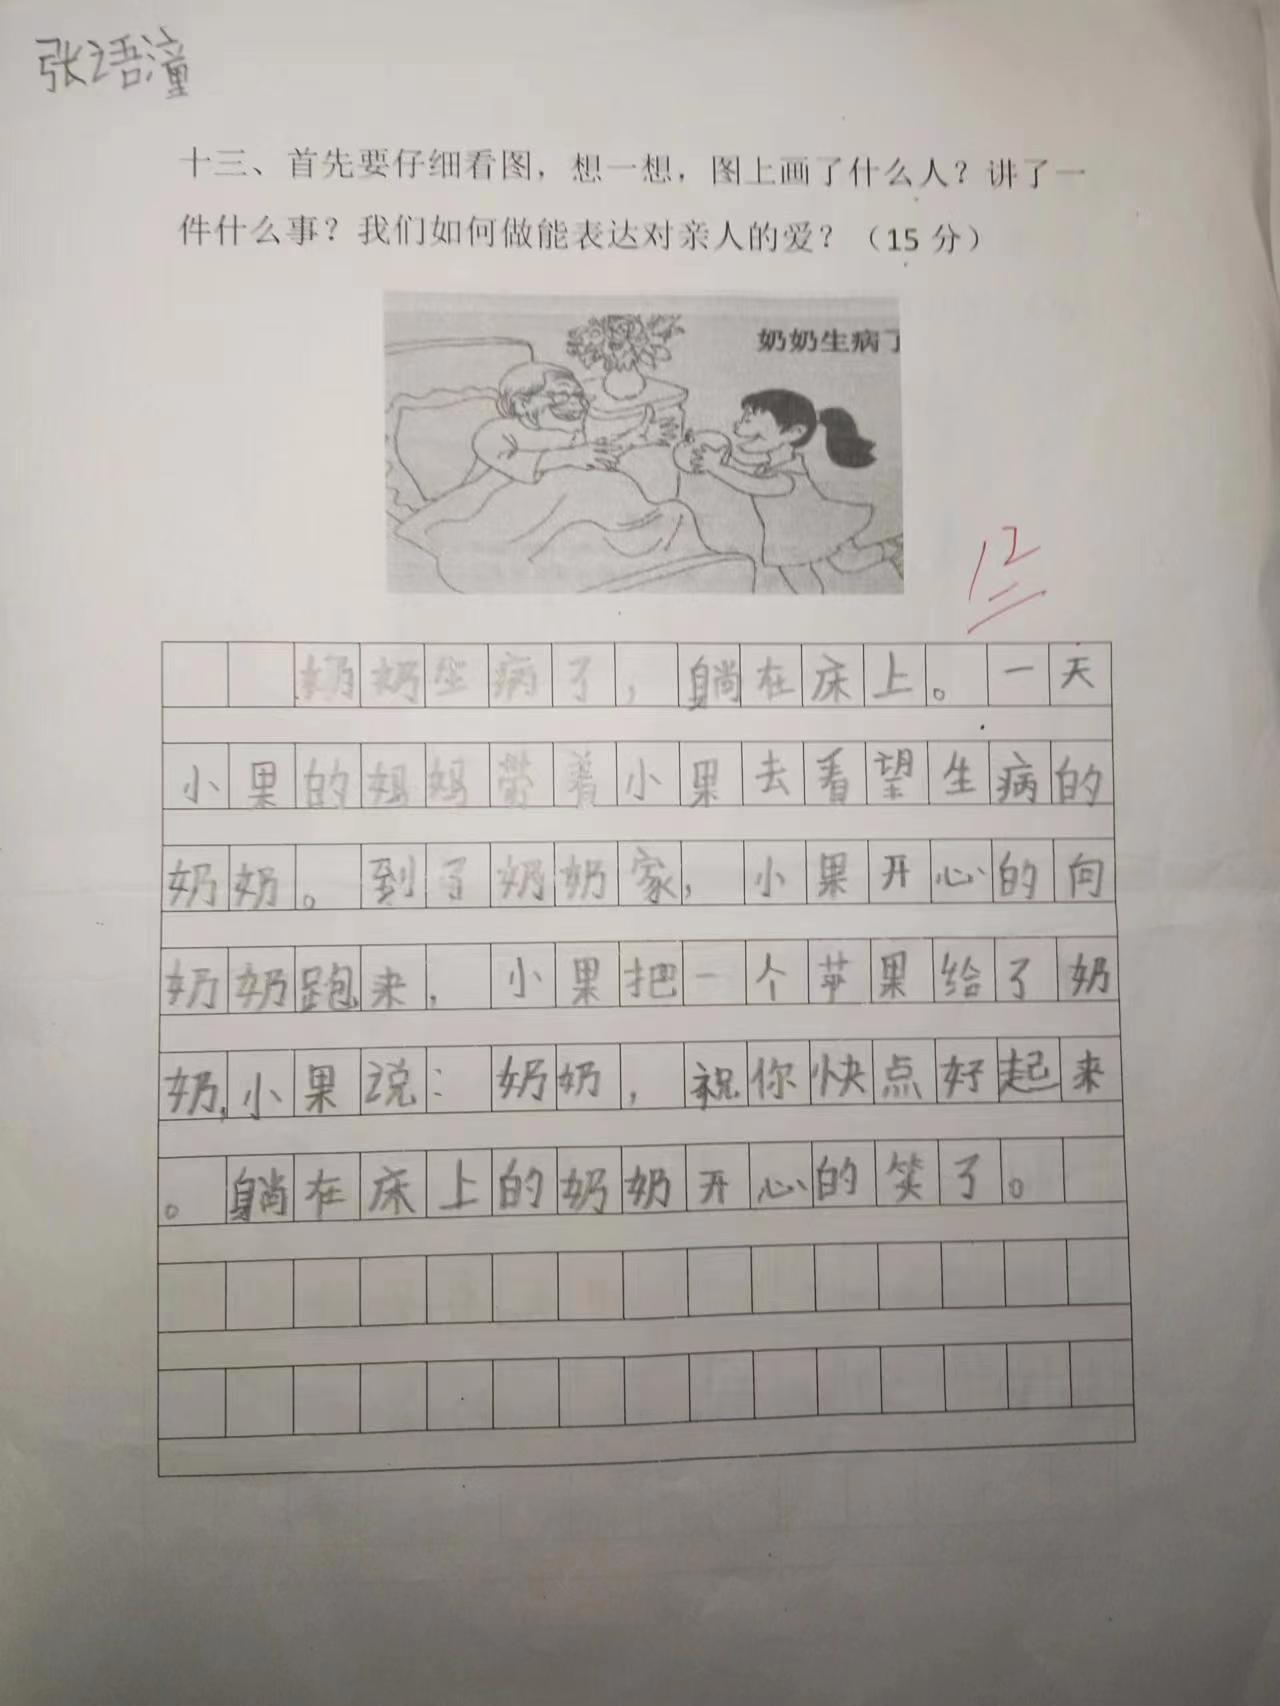 张语潼
十三、首先要仔细看图，想一想，图上画了什么人？讲了一
件什么事？我们如何做能表达对亲人的爱？（15 分）
奶奶生病了
12
奶奶生病了，躺在床上。一天
小果的妈妈带着小果去看望生病的
奶奶。到了奶奶家，小果开心的向
奶奶跑来，小果把一个苹果给了奶
奶，小果说：奶奶，祝你快点好起来
。躺在床上的奶奶开心的笑了。